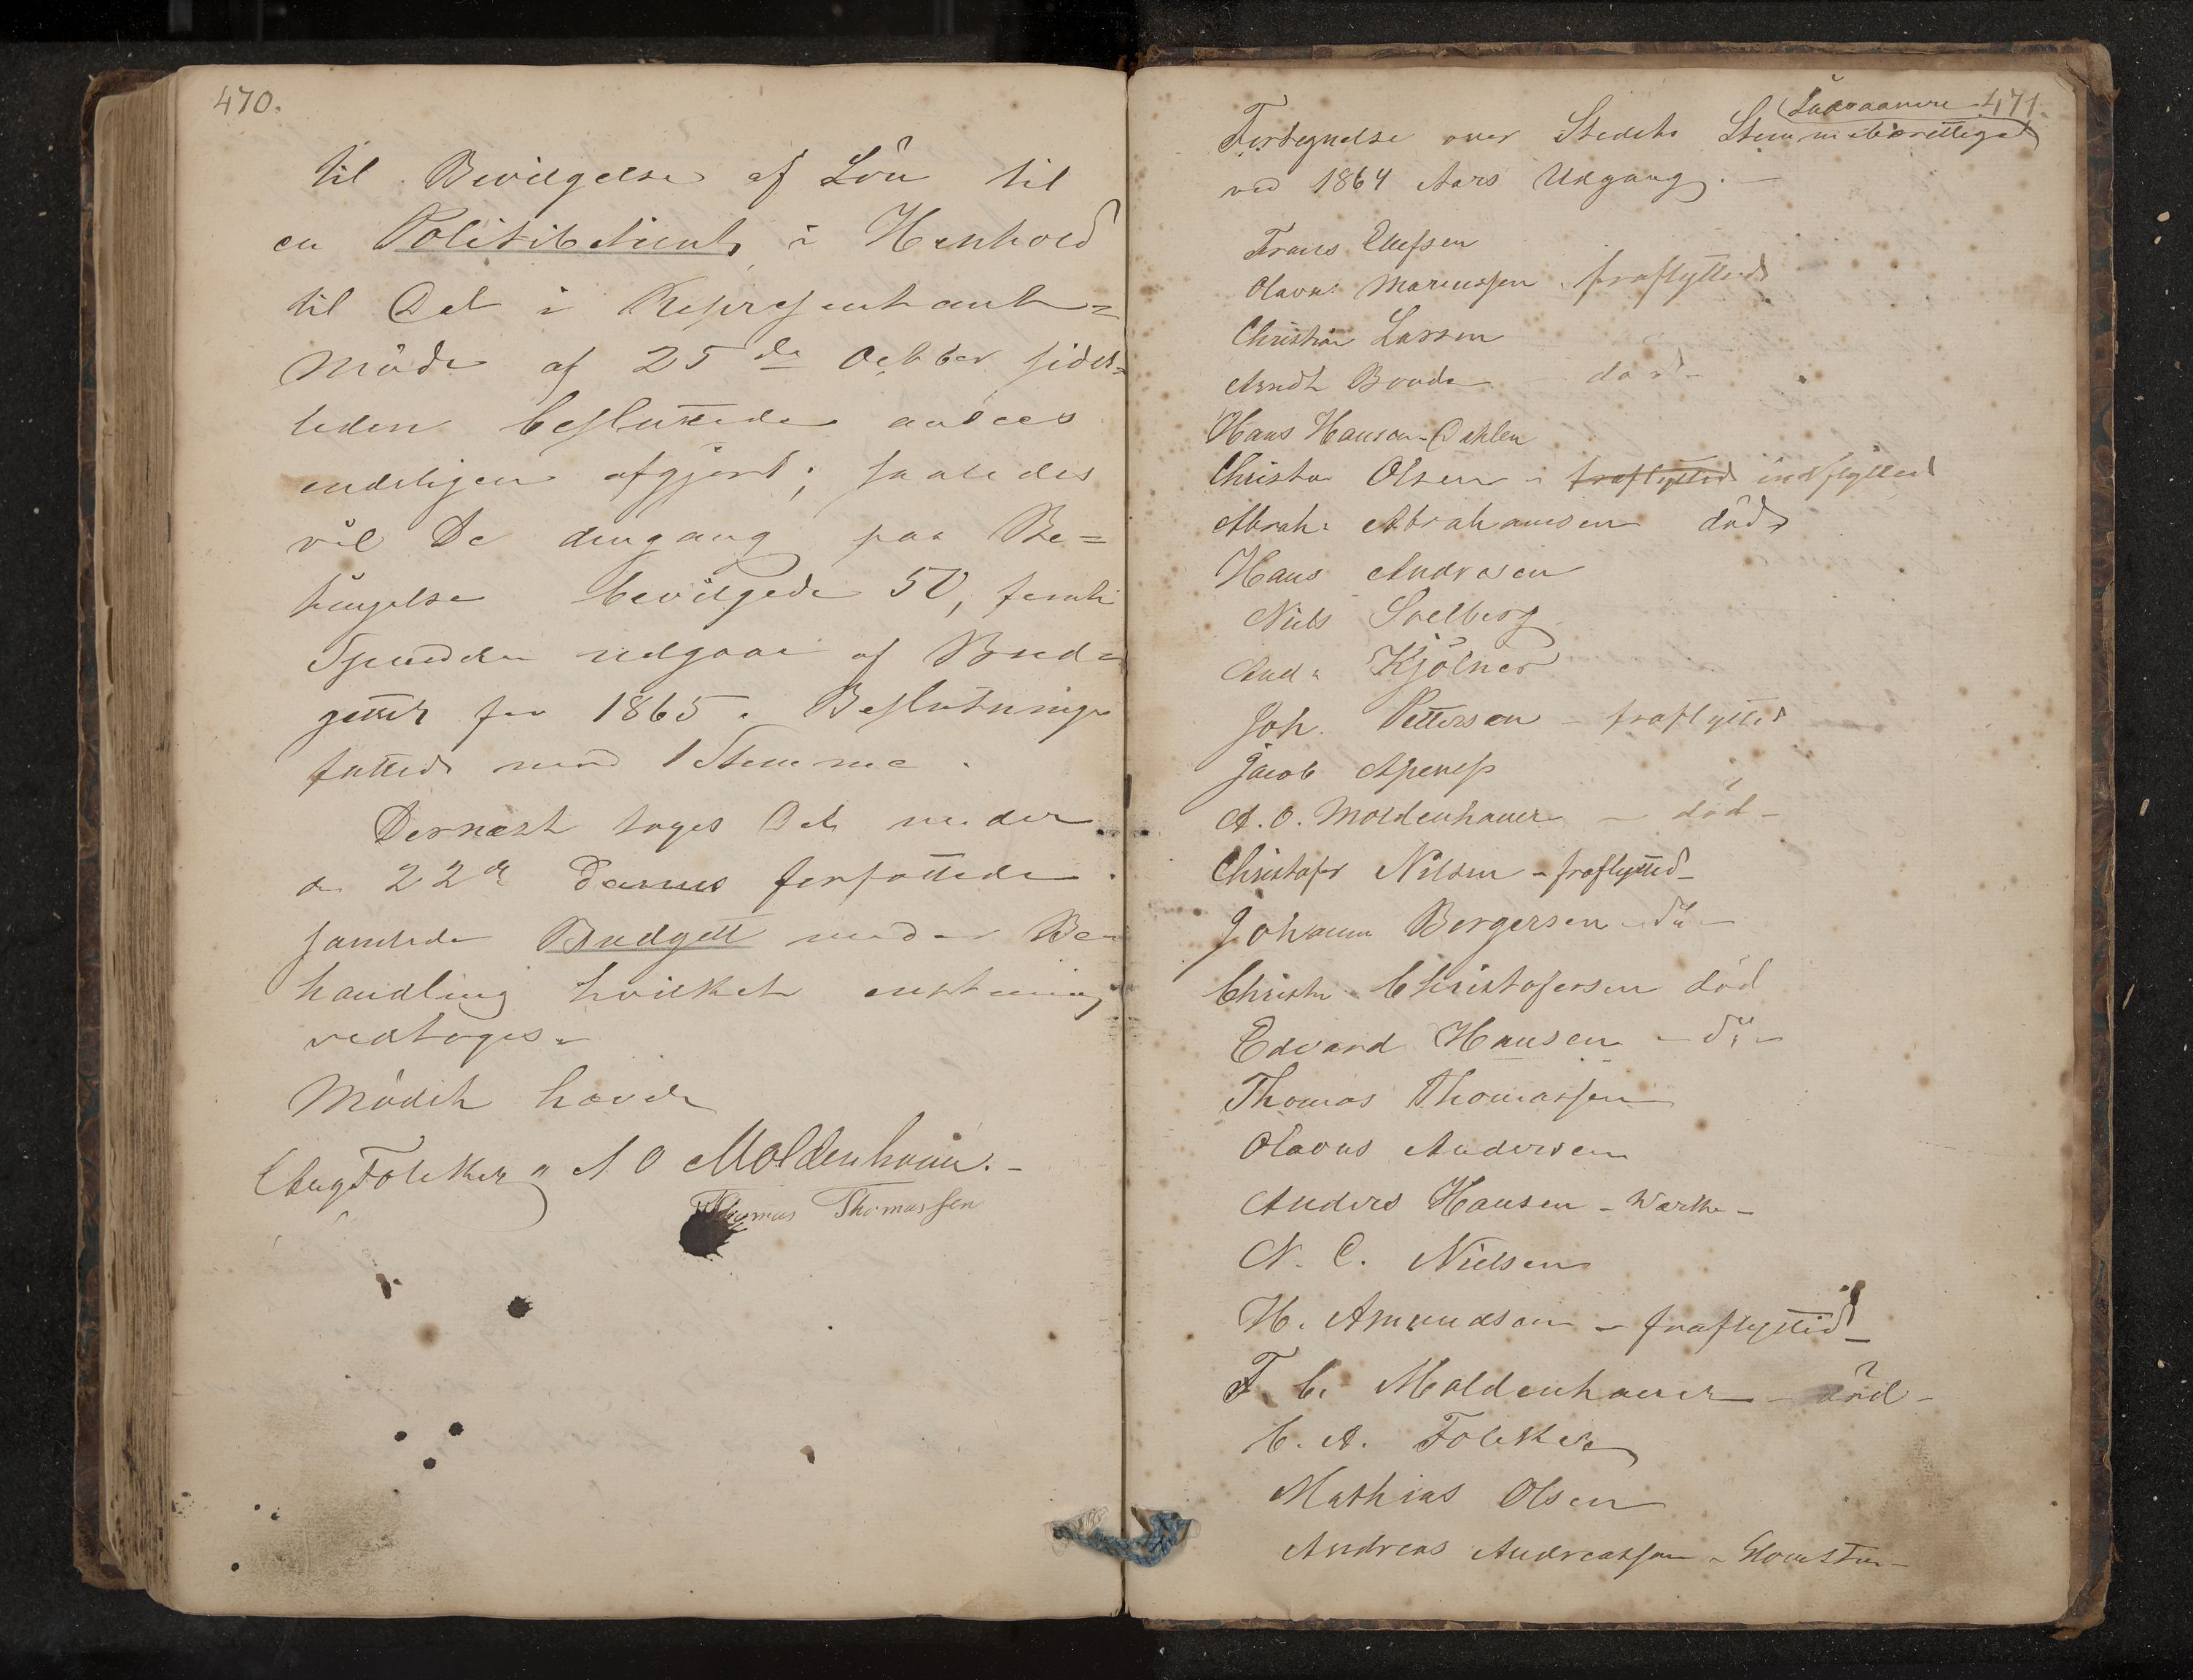 470.
til Bevilgelse af Lön til
en Politibetient, i Henhold
til Det i Repræsentant=
Möde af 25de Octber sidst=
leden besluttede ansees
endeligen afgjort; saaledes
vil De dengang paa Be=
tingelse bevilgede 50, femti
Spesidlr udgaar af Bud=
gettet for 1865. Beslutninge
fattede med 1 Stemme.
Dernæst toges Det under
den 22de Dennes forfattede
samlede Budgett under Be=
handling hvilket enstemig
vedtoges.
Mödet hævet
Aug Foleker A O Moldenhauer.-
Thomas Thomassen
471.
Fortegnelse over Stedets Stemmeberettiged
ved 1864 Aars Udgang.-
Frans Ellefsen
Olavus Mariussen fraflytted
Christian Larsen
Arndt Boode - död -
Hans Hanson-Dahlen
Christen Olsen - fraflytted indflytted
Abrah: Abrahamsen död
Hans Andresen
Niels Soelberg
And: Kjölner
Joh. Pettersen - fraflytted
Jacob Apenes
A. O. Moldenhauer - död -
Christofer Nilsen - fraflytted -
Johann Bergersen - do -
Christen Christofersen död
Edvard Hansen - do -
Thomas Thomassen
Olavus Andersen
Anders Hansen - Wærke -
N. C. Nielsen
H. Amundsen - fraflytted -
F. C. Moldenhauer - död -
C. A. Foleker
Mathias Olsen
Andreas Andreassen -